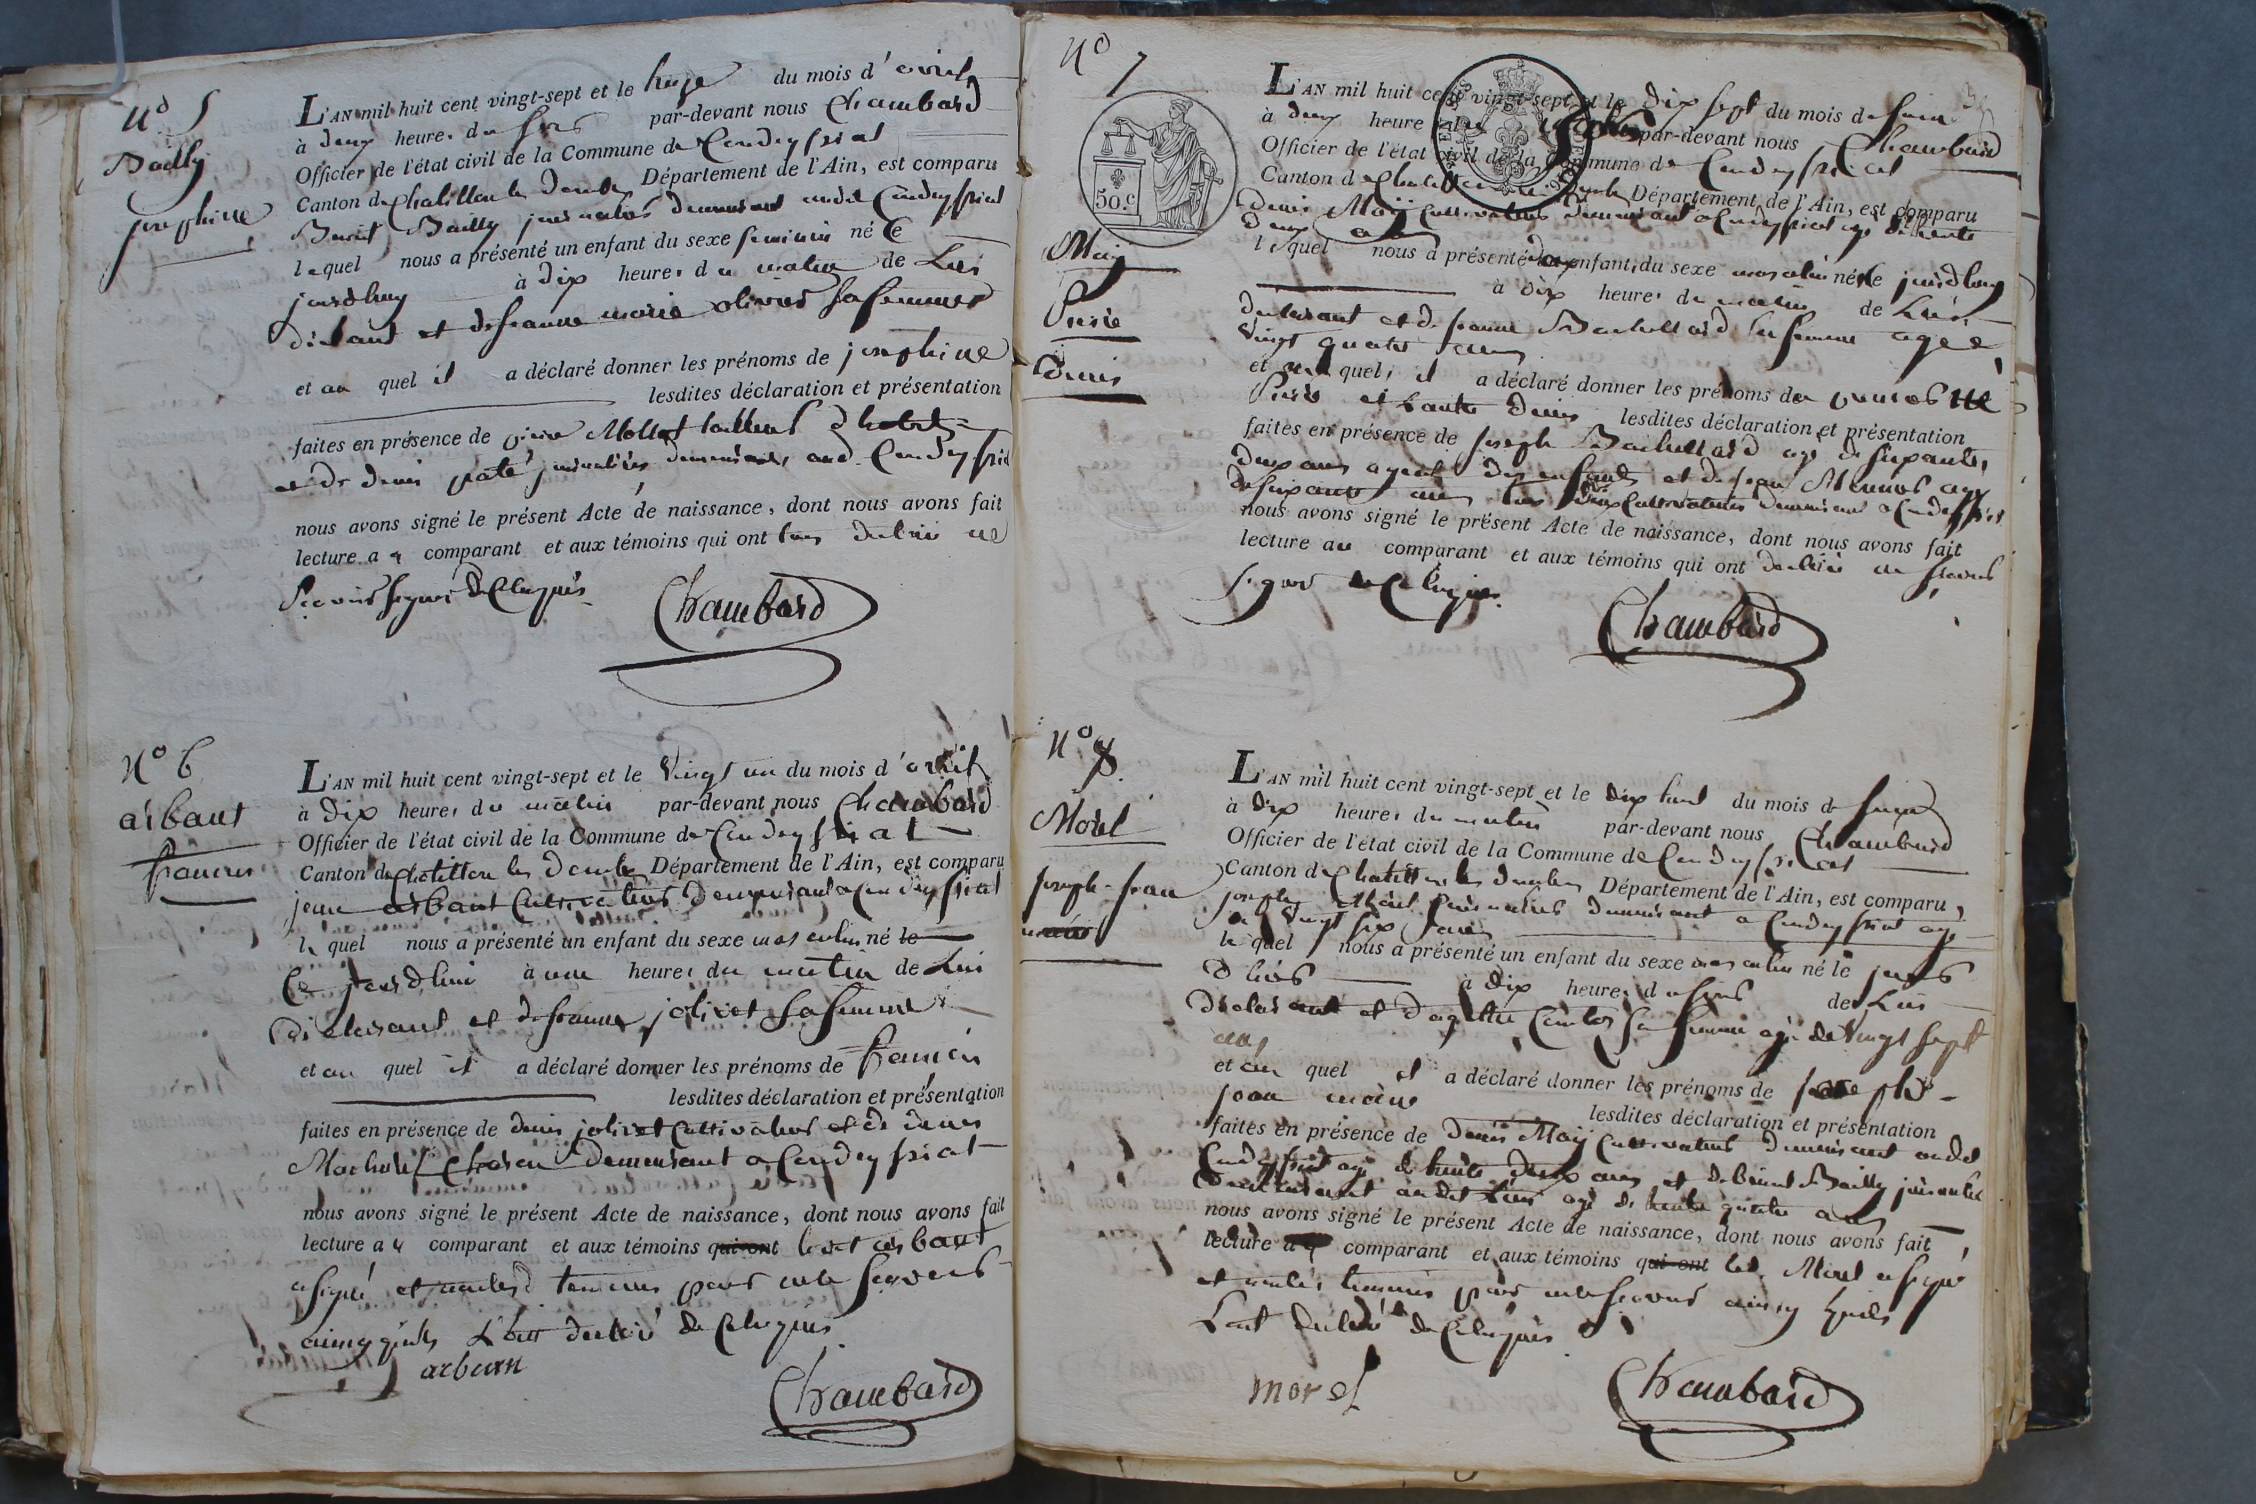 N° 5
Bailly
josephine
L'AN mil huit cent vingt-sept et le du mois d'avril
à deux heures du soir par-devant nous Chambard
Officier de l'état civil de la Commune de Condeyssiat
Canton de Chatillon les Dombes Département de l'Ain, est comparu
Benoit Bailly journalier demeurant audit Condeyssiat
lequel nous a présenté un enfant du sexe feminin né Ce
jourdhuy à dix heures du matin de Lui
et de jeanne marie olivier sa femme
et au quel il a déclaré donner les prénoms de josephine
lesdites déclaration et présentation
faites en présence de pierre Mollet tailleur d'habits
et de denis paté journalier demeurant aud. Condeyssiat
nous avons signé le présent Acte de naissance, dont nous avons fait
lecture au comparant et aux témoins qui ont tous declaré ne
Savoir signer de Ce requis
Chambard
N° 6
arbant
francois
L'AN mil huit cent vingt-sept et le Vingt un du mois d'avril
à dix heures du matin par-devant nous Chambard
Officier de l'état civil de la Commune de Condeyssiat
Canton de Chatillon les Dombes Département de l'Ain, est comparu
arbant Cultivateur demeurant a Condeyssiat
lequel nous a présenté un enfant du sexe masculin né le
Ce jourdhui à une heure du matin de Lui
declarant et de jeanne jolivet sa femme
et au quel il a déclaré donner les prénoms de francois
lesdites déclaration et présentation
faites en présence de denis jolivet Cultivateur et de
demeurant a Condeyssiat
nous avons signé le présent Acte de naissance, dont nous avons fait
lecture au comparant et aux témoins qui ont ledit arbant
a signé et non les temoins pour ne le Savoir
ainsy qu'ils L'ont declaré de Ce requis
arbant
Chambard
N° 7
50.c
May
Pierre
Denis
L'AN mil huit cent vingt-sept et le dix sept du mois de juin
à deux heures du par-devant nous Chambard
Officier de l'état civil de la Commune de Condeyssiat
Canton de Chatillon les Dombes Département de l'Ain, est comparu
Denis May Cultivateur demeurant a Condeyssiat agé de trente
deux ans
lequel nous a présenté deux enfants du sexe masculin nés le jourdhuy
à dix heures du matin de Lui
declarant et de jeanne Bachellard sa femme agée
Vingt quatre ans
et quel il a déclaré donner les prénoms de
Pierre et Lautre denis lesdites déclaration et présentation
faites en présence de joseph Bachellard agé de soixante
deux ans des enfants et de jean
de soixante ans tous deux Cultivateurs demeurant a Condeyssiat
nous avons signé le présent Acte de naissance, dont nous avons fait
lecture au comparant et aux témoins qui ont declaré ne savoir
signer de Ce requis
Chambard
N° 8
Morel
joseph-jean
L'AN mil huit cent vingt-sept et le dix huit du mois de juin
à dix heures du matin par-devant nous Chambard
Officier de l'état civil de la Commune de Condeyssiat
Canton de Chatillon les Dombes Département de l'Ain, est comparu
joseph journalier demeurant a Condeyssiat agé
de Vingt six ans
lequel nous a présenté un enfant du sexe masculin né le jour
d'hier à dix heures du soir de Lui
declarant et d'agathe sa femme agé de Vingt sept
ans
et au quel il a déclaré donner les prénoms de joseph
jean lesdites déclaration et présentation
faites en présence de Denis May Cultivateur demeurant audit
Condeyssiat agé de trente deux ans et de Benoit Bailly journalier
demeurant audit Lieu agé de trente quatre ans
nous avons signé le présent Acte de naissance, dont nous avons fait
lecture au comparant et aux témoins qui ont led. Morel a signé
et non les temoins pour ne le savoir ainsy qu'ils
L'ont declaré de Ce requis
morel
Chambard